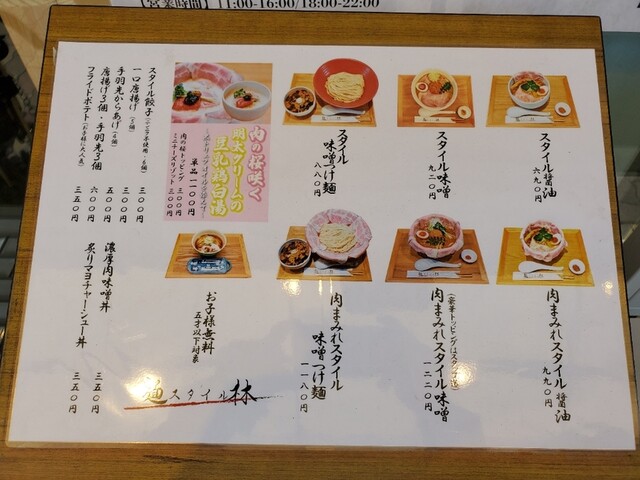 【営業時間】 11:00-16:00/18:00-22:00
スタイル醤油
六九〇円
スタイル味噌
九二〇円
スタイル
味噌つけ麺
八八〇円
肉の桜咲く
明太クリームの
豆乳鶏白湯
単品一一〇〇円
肉の桜トッピング 三〇〇円
ミニチーズリゾット 三〇〇円
スタイル餃子
一口唐揚げ
三〇〇円
手羽先からあげ
三〇〇円
唐揚げ3個・手羽先3個
六〇〇円
フライドポテト(お子様に大人気)
三五〇円
肉まみれスタイル醤油
九九〇円
肉まみれスタイル味噌
(豪華トッピングはスタンプ逆)
一二二〇円
肉まみれスタイル
味噌つけ麺
一一八〇円
お子様無料
五才以下対象
濃厚肉味噌丼
三五〇円
炙りマヨチャーシュー丼
三五〇円
麺スタイル林